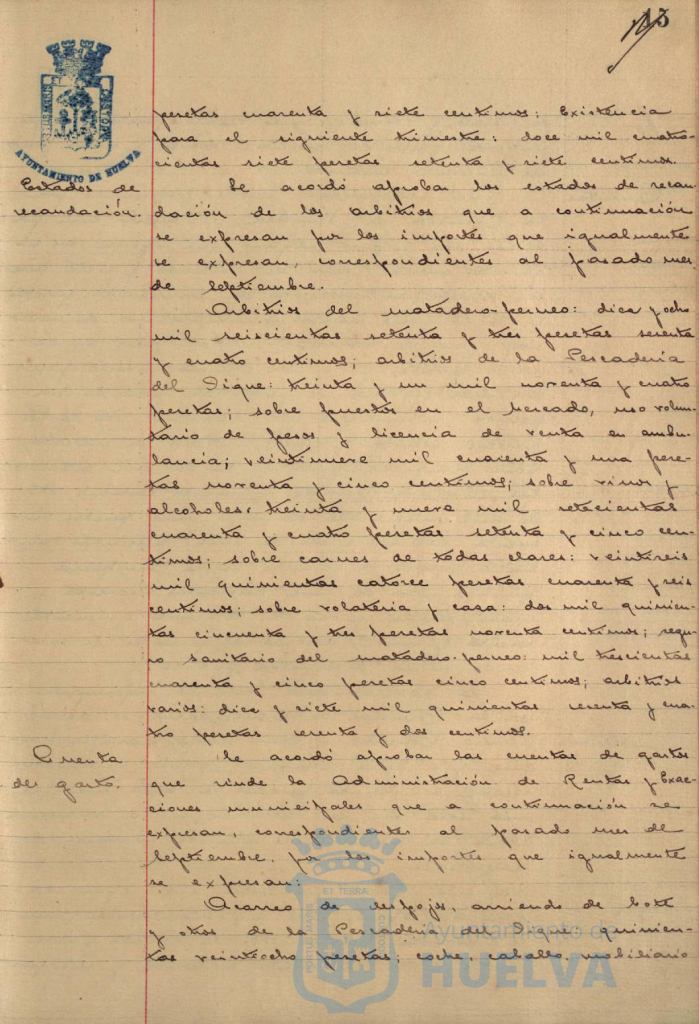 13
pesetas cuarenta y siete centimos; Existencia
para el siguiente trimestre: doce mil cuatro-
cientas siete pesetas setenta y siete centimos.
AYUNTAMIENTO DE HUELVA
Estados de
recaudación.
Se acordó aprobar los estados de recau-
dación de los arbitrios que a continuación
se expresan por los importes que igualmente
se expresan, correspondientes al pasado mes
de Septiembre.
Arbitrios del matadero-perneo: diez y ocho
mil seiscientas setenta y tres pesetas sesenta
y cuatro centimos; arbitrios de la Pescaderia
del Dique: treinta y un mil noventa y cuatro
pesetas; sobre puestos en el Mercado, uso volun-
tario de pesos y licencia de venta en ambu-
lancia; veintinueve mil cuarenta y una pese-
tas noventa y cinco centimos; sobre vinos y
alcoholes: treinta y nueve mil setecientas
cuarenta y cuatro pesetas setenta y cinco cen-
timos; sobre carnes de todas clases: veintiseis
mil quinientas catorce pesetas cuarenta y seis
centimos; sobre volateria y casa: dos mil quinien-
tas cincuenta y tres pesetas noventa centimos; segu-
ro sanitario del matadero-perneo: mil trescientas
cuarenta y cinco pesetas cinco centimos; arbitrios
varios: diez y siete mil quinientas sesenta y cua-
tro pesetas sesenta y dos centimos.
Cuenta
de gasto.
Se acordó aprobar las cuentas de gastos
que rinde la Administración de Rentas y Exac-
ciones municipales que a continuación se
expresan, correspondientes al pasado mes de
Septiembre, por los importes que igualmente
se expresan:
Acarreo de despojos, arriendo de bote
y otros de la Pescaderia del Dique: quinien-
tas veintiocho pesetas; coche, caballo, mobiliario
Ayuntamiento de
HUELVA